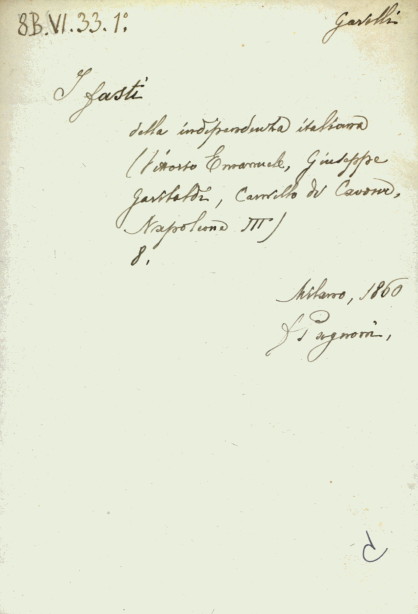 8B.VI.33.1º
Garelli
I fasti
della indipendenza italiana
(Vittorio Emanuele, Giuseppe
Garibaldi, Camillo di Cavour,
Napoleone III)
8.
Milano, 1860
f Pagnoni,
C